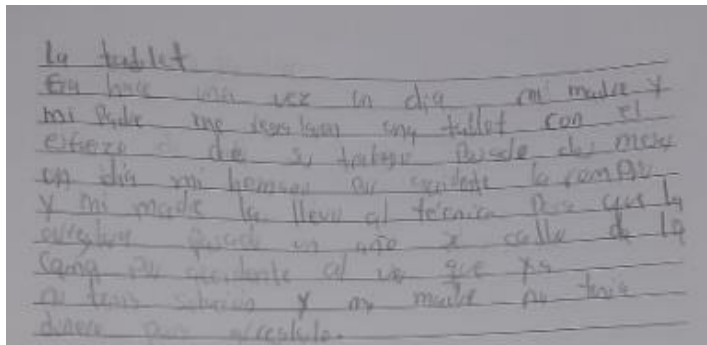 La tablet
Era hace una vez un dia mi madre y
mi Padre me regalaron una tablet con el
esfuerzo de su trabajo Pasado dos meses
un dia mi hermano Por accidente la rompio
y mi madre la llevo al técnico Para que la
arreglara Pasado un año y callo de la
cama Por accidente al ver que ya
no tenia y mi madre no tenia
dinero para